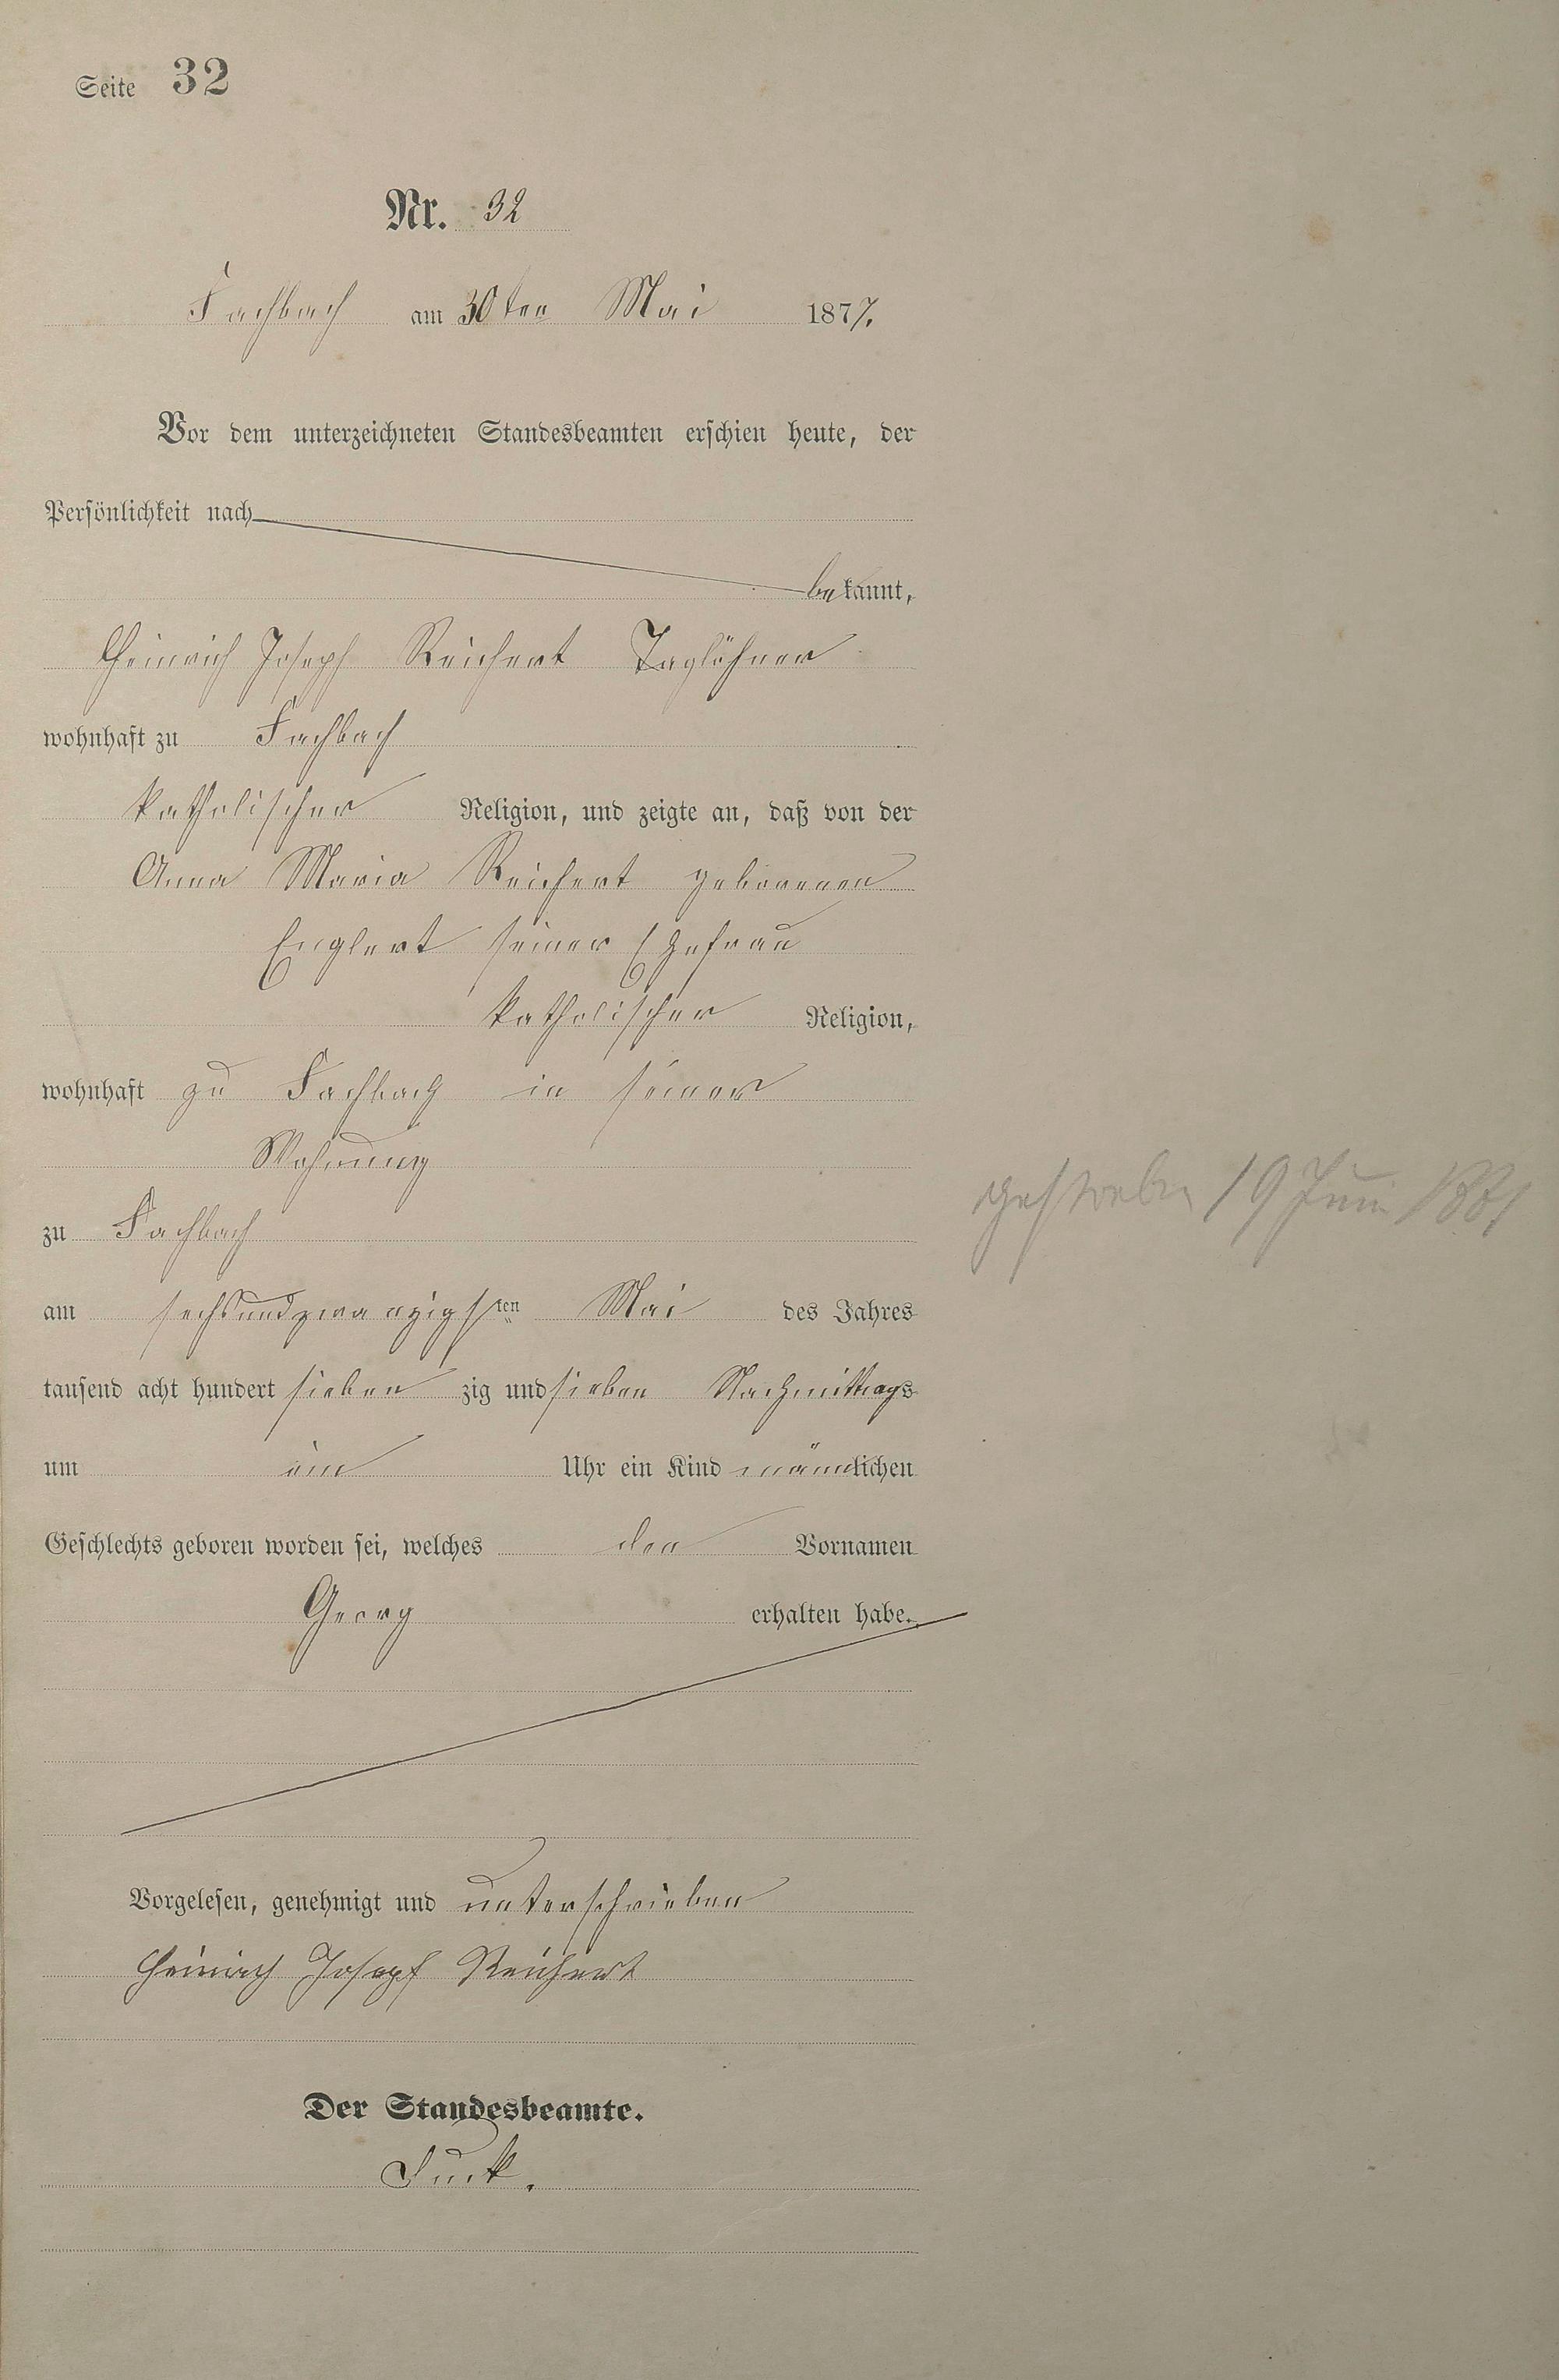 Seite 32
Nr. 32
Fachbach am 30ten Mai 1877.
Vor dem unterzeichneten Standesbeamten erschien heute, der
Persönlichkeit nach
bekannt,
Heinrich Joseph Reichert Taglöhner
wohnhaft zu Fachbach
katholischer Religion, und zeigte an, daß von der
Anna Maria Reichert geborenen
Englert seiner Ehefrau
katholischer Religion,
wohnhaft zu Fachbach in seiner
Wohnung
zu Fachbach
gestorben 19 Juni
am sechsundzwanzigsten Mai des Jahres
tausend acht hundert siebenzig und sieben Nachmittags
um ein Uhr ein Kind männlichen
Geschlechts geboren worden sei, welches den Vornamen
Georg erhalten habe.
Vorgelesen, genehmigt und unterschrieben
Heinrich Joseph Reichert
Der Standesbeamte.